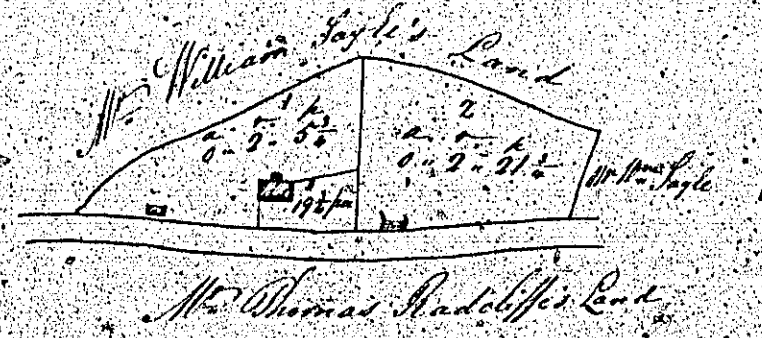 Mr William Sayle's Land
1
a r p
0 " 2 " 5 3/4
2
a r p
0 " 2 " 21 3/4
Mr Wm Sayle
Mr Thomas Radcliffe's Land